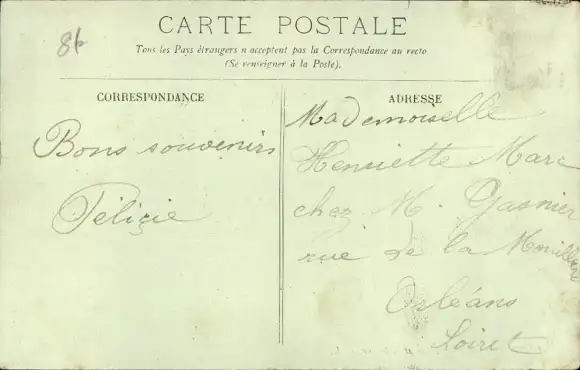 86
CARTE POSTALE
Tous les Pays étrangers n acceptent pas la Correspondance au recto
(Se renseigner à la Poste).
CORRESPONDANCE
Bons souvenirs
Féliçie
ADRESSE
Mademoiselle
Henriette Marc
chez M. Gasnier
rue de la
Orléans
Loiret